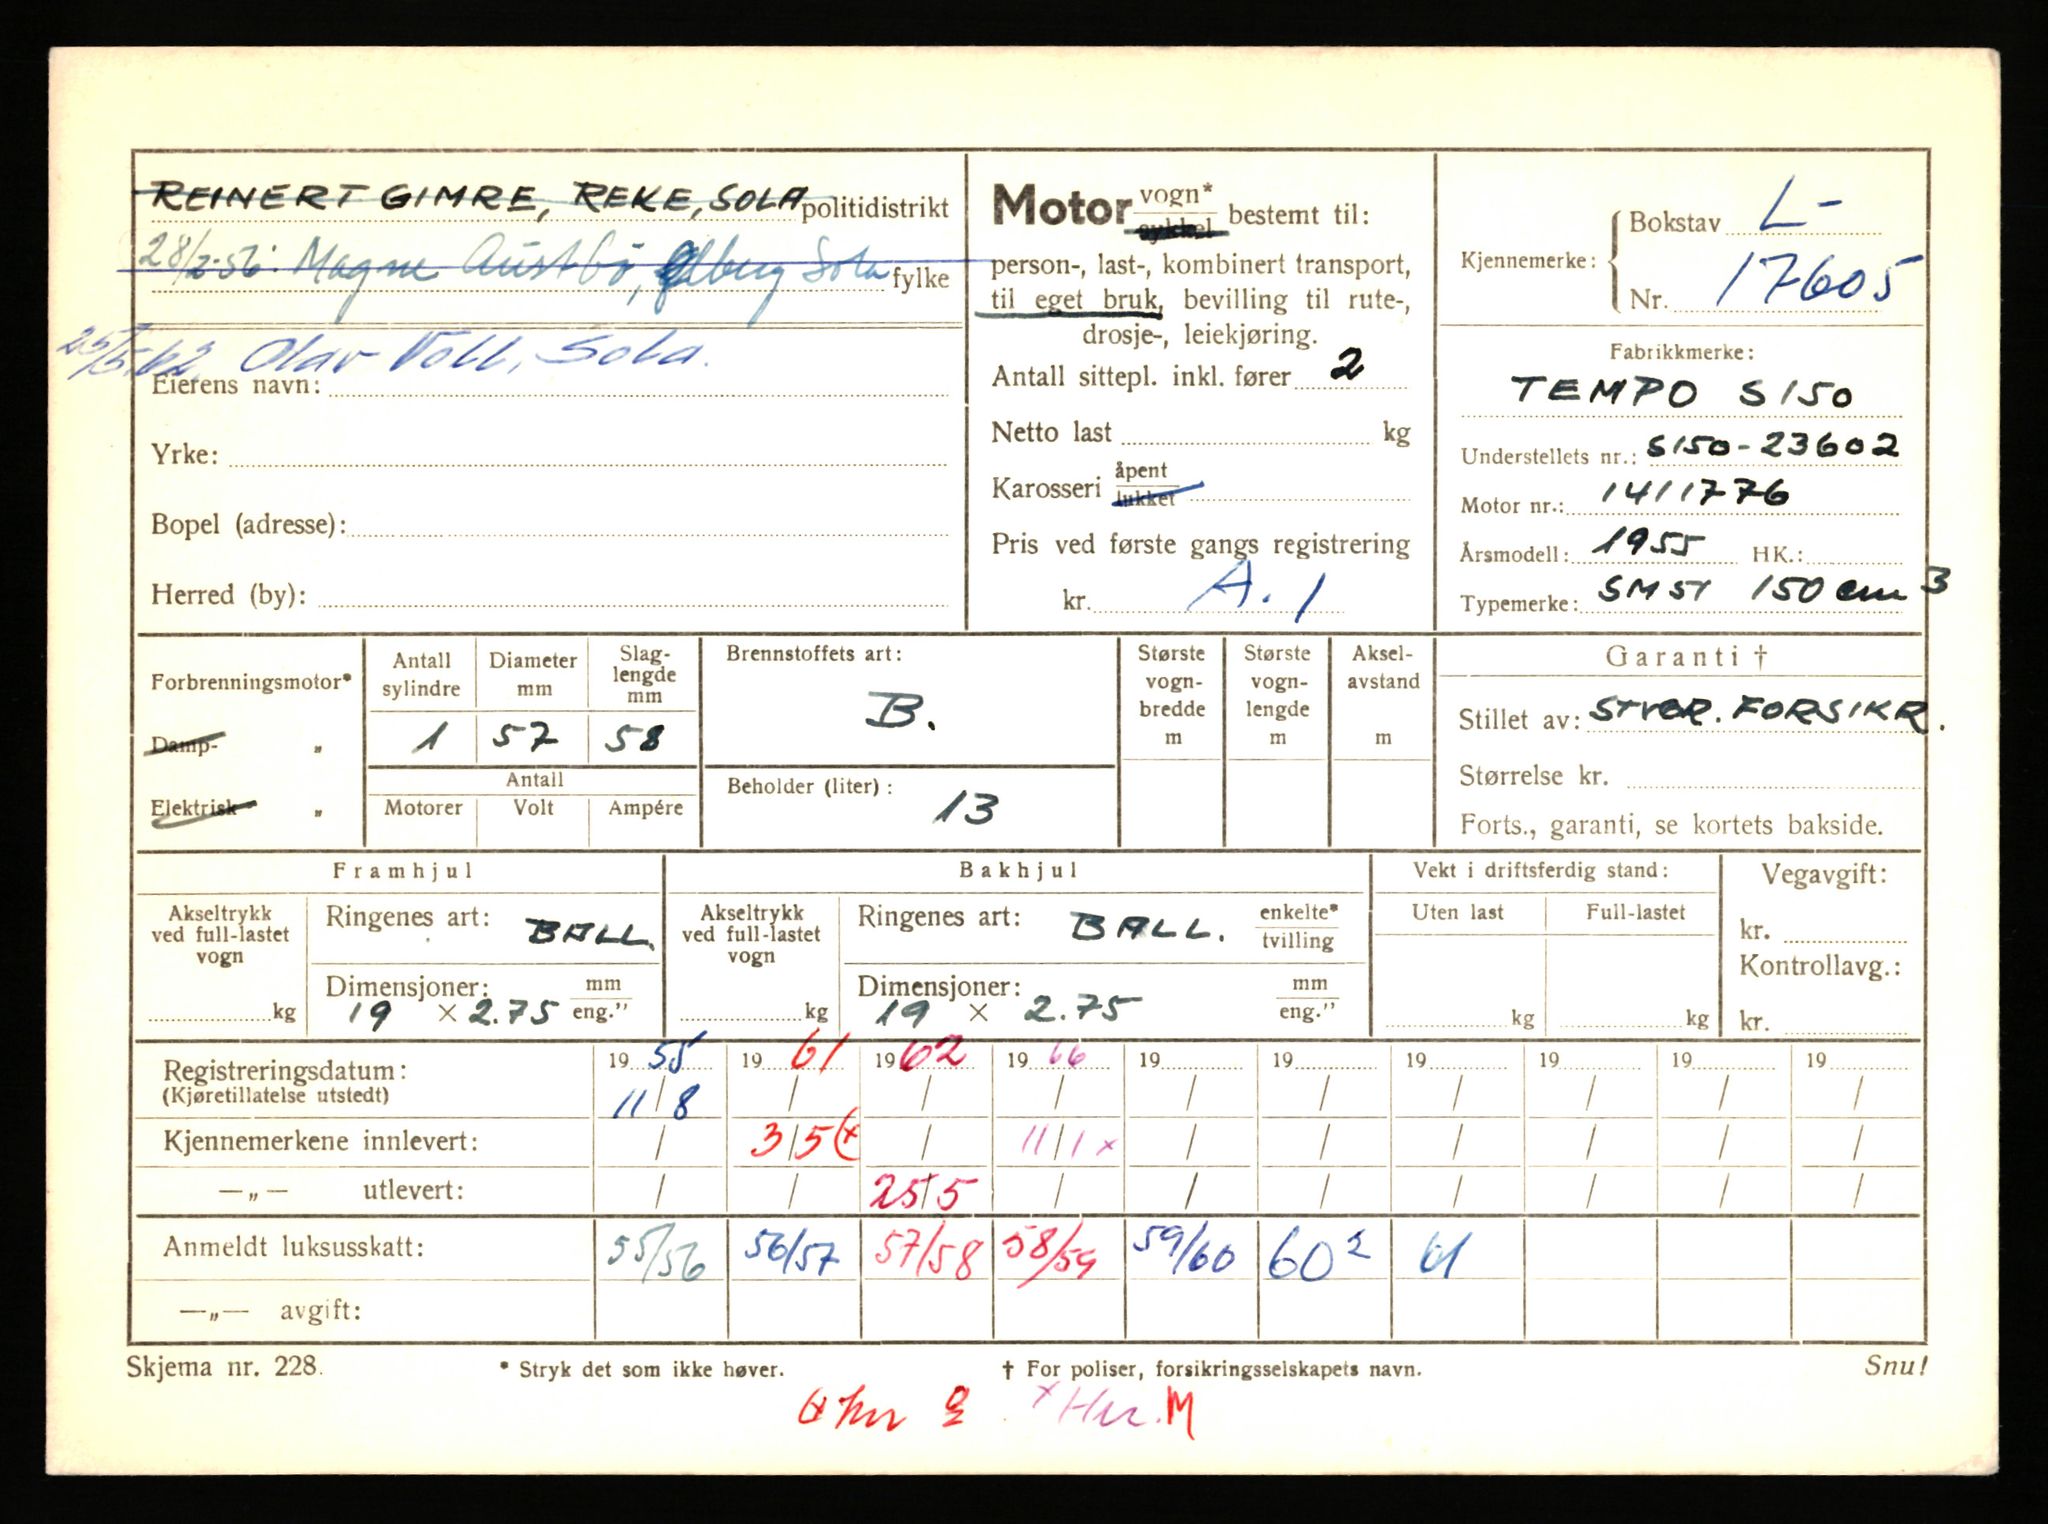 REINERT GIMRE, REKE, SOLA politidistrikt
Magne Austbö, Sola fylke
Olav Voll, Sola.
Eierens navn:
Yrke:
Bopel (adresse):
Herred (by):
Motor vogn* sykkel bestemt til:
person-, last-, kombinert transport,
til eget bruk, bevilling til rute-,
drosje-, leiekjøring.
Antall sittepl. inkl. fører 2
Netto last kg
Karosseri åpent lukket
Pris ved første gangs registrering
kr. A. 1
Kjennemerke: Bokstav L-
Nr. 17605
Fabrikkmerke:
TEMPO S150
Understellets nr.: S150-23602
Motor nr.: 1411776
Årsmodell: 1955 HK.:
Typemerke: SM51 150 cm3
Forbrenningsmotor*
Damp- „
Elektrisk „
Antall sylindre 1
Diameter mm 57
Slag-lengde mm 58
Antall
Motorer Volt Ampére
Brennstoffets art:
B.
Beholder (liter):
13
Største vogn-bredde m
Største vogn-lengde m
Aksel-avstand m
Garanti †
Stillet av: STVGR. FORSIKR.
Størrelse kr.
Forts., garanti, se kortets bakside.
Framhjul
Akseltrykk ved full-lastet vogn
kg
Ringenes art: BALL.
Dimensjoner: mm
19 × 2.75 eng.”
Bakhjul
Akseltrykk ved full-lastet vogn
kg
Ringenes art: BALL. enkelte* tvilling
Dimensjoner: mm
19 × 2.75 eng.”
Vekt i driftsferdig stand:
Uten last Full-lastet
kg kg
Vegavgift:
kr.
Kontrollavg.:
kr.
Registreringsdatum: 19 55 19 61 19 62 19 66 19 19 19 19 19 19
(Kjøretillatelse utstedt) 11/8 / / / / / / / / /
Kjennemerkene innlevert: / 3/5 (x / 11/1 x / / / / / /
—„— utlevert: / / 25/5 / / / / / / /
Anmeldt luksusskatt: 55/56 56/57 57/58 58/59 59/60 60² 61
—„— avgift:
Skjema nr. 228. * Stryk det som ikke høver. † For poliser, forsikringsselskapets navn. Snu!